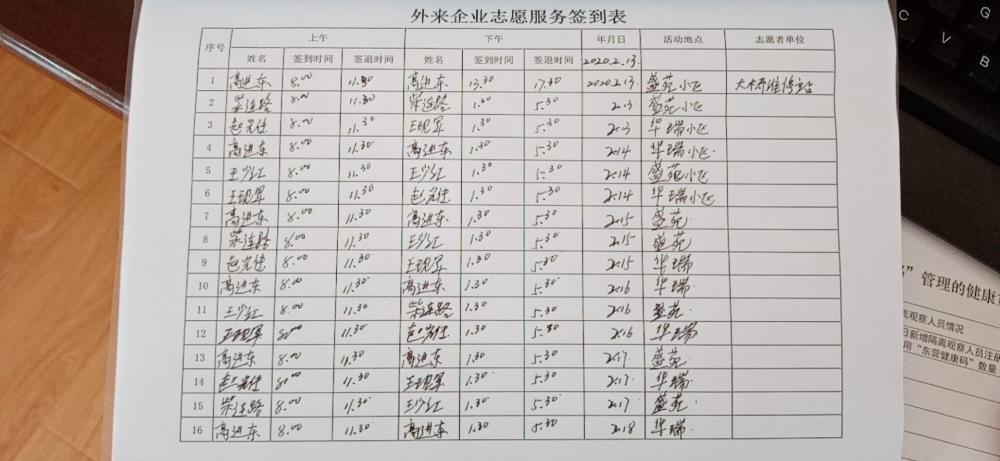 外来企业志愿服务签到表
序号 上午 下午 年月日 活动地点 志愿者单位
姓名 签到时间 签退时间 姓名 签到时间 签退时间 2020.2.13.
1 高进东 8.00 11.30 高进东 13.30 17.30 2020.2.13 盛苑小区
2 柴连路 8.00 11.30 柴连路 1.30 5.30 2.13 盛苑小区
3 赵岩佳 8.00 11.30 王现军 1.30 5.30 2.13 华瑞小区
4 高进东 8.00 11.30 高进东 1.30 5.30 2.14 华瑞小区
5 王少江 8.00 11.30 王少江 1.30 5.30 2.14 盛苑小区
6 王现军 8.00 11.30 赵岩佳 1.30 5.30 2.14 华瑞小区
7 高进东 8.00 11.30 高进东 1.30 5.30 2.15 盛苑
8 柴连路 8.00 11.30 王少江 1.30 5.30 2.15 盛苑
9 赵岩佳 8.00 11.30 王现军 1.30 5.30 2.15 华瑞
10 高进东 8.00 11.30 高进东 1.30 5.30 2.16 华瑞
11 王少江 8.00 11.30 柴连路 1.30 5.30 2.16 盛苑
12 王现军 8.00 11.30 赵岩佳 1.30 5.30 2.16 华瑞
13 高进东 8.00 11.30 高进东 1.30 5.30 2.17 盛苑
14 赵岩佳 8.00 11.30 王现军 1.30 5.30 2.17 华瑞
15 柴连路 8.00 11.30 王少江 1.30 5.30 2.17 盛苑
16 高进东 8.00 11.30 高进东 1.30 5.30 2.18 华瑞
”管理的健康
离观察人员情况
日新增隔离观察人员注册
用“东营健康码”数量
C
V
G
B